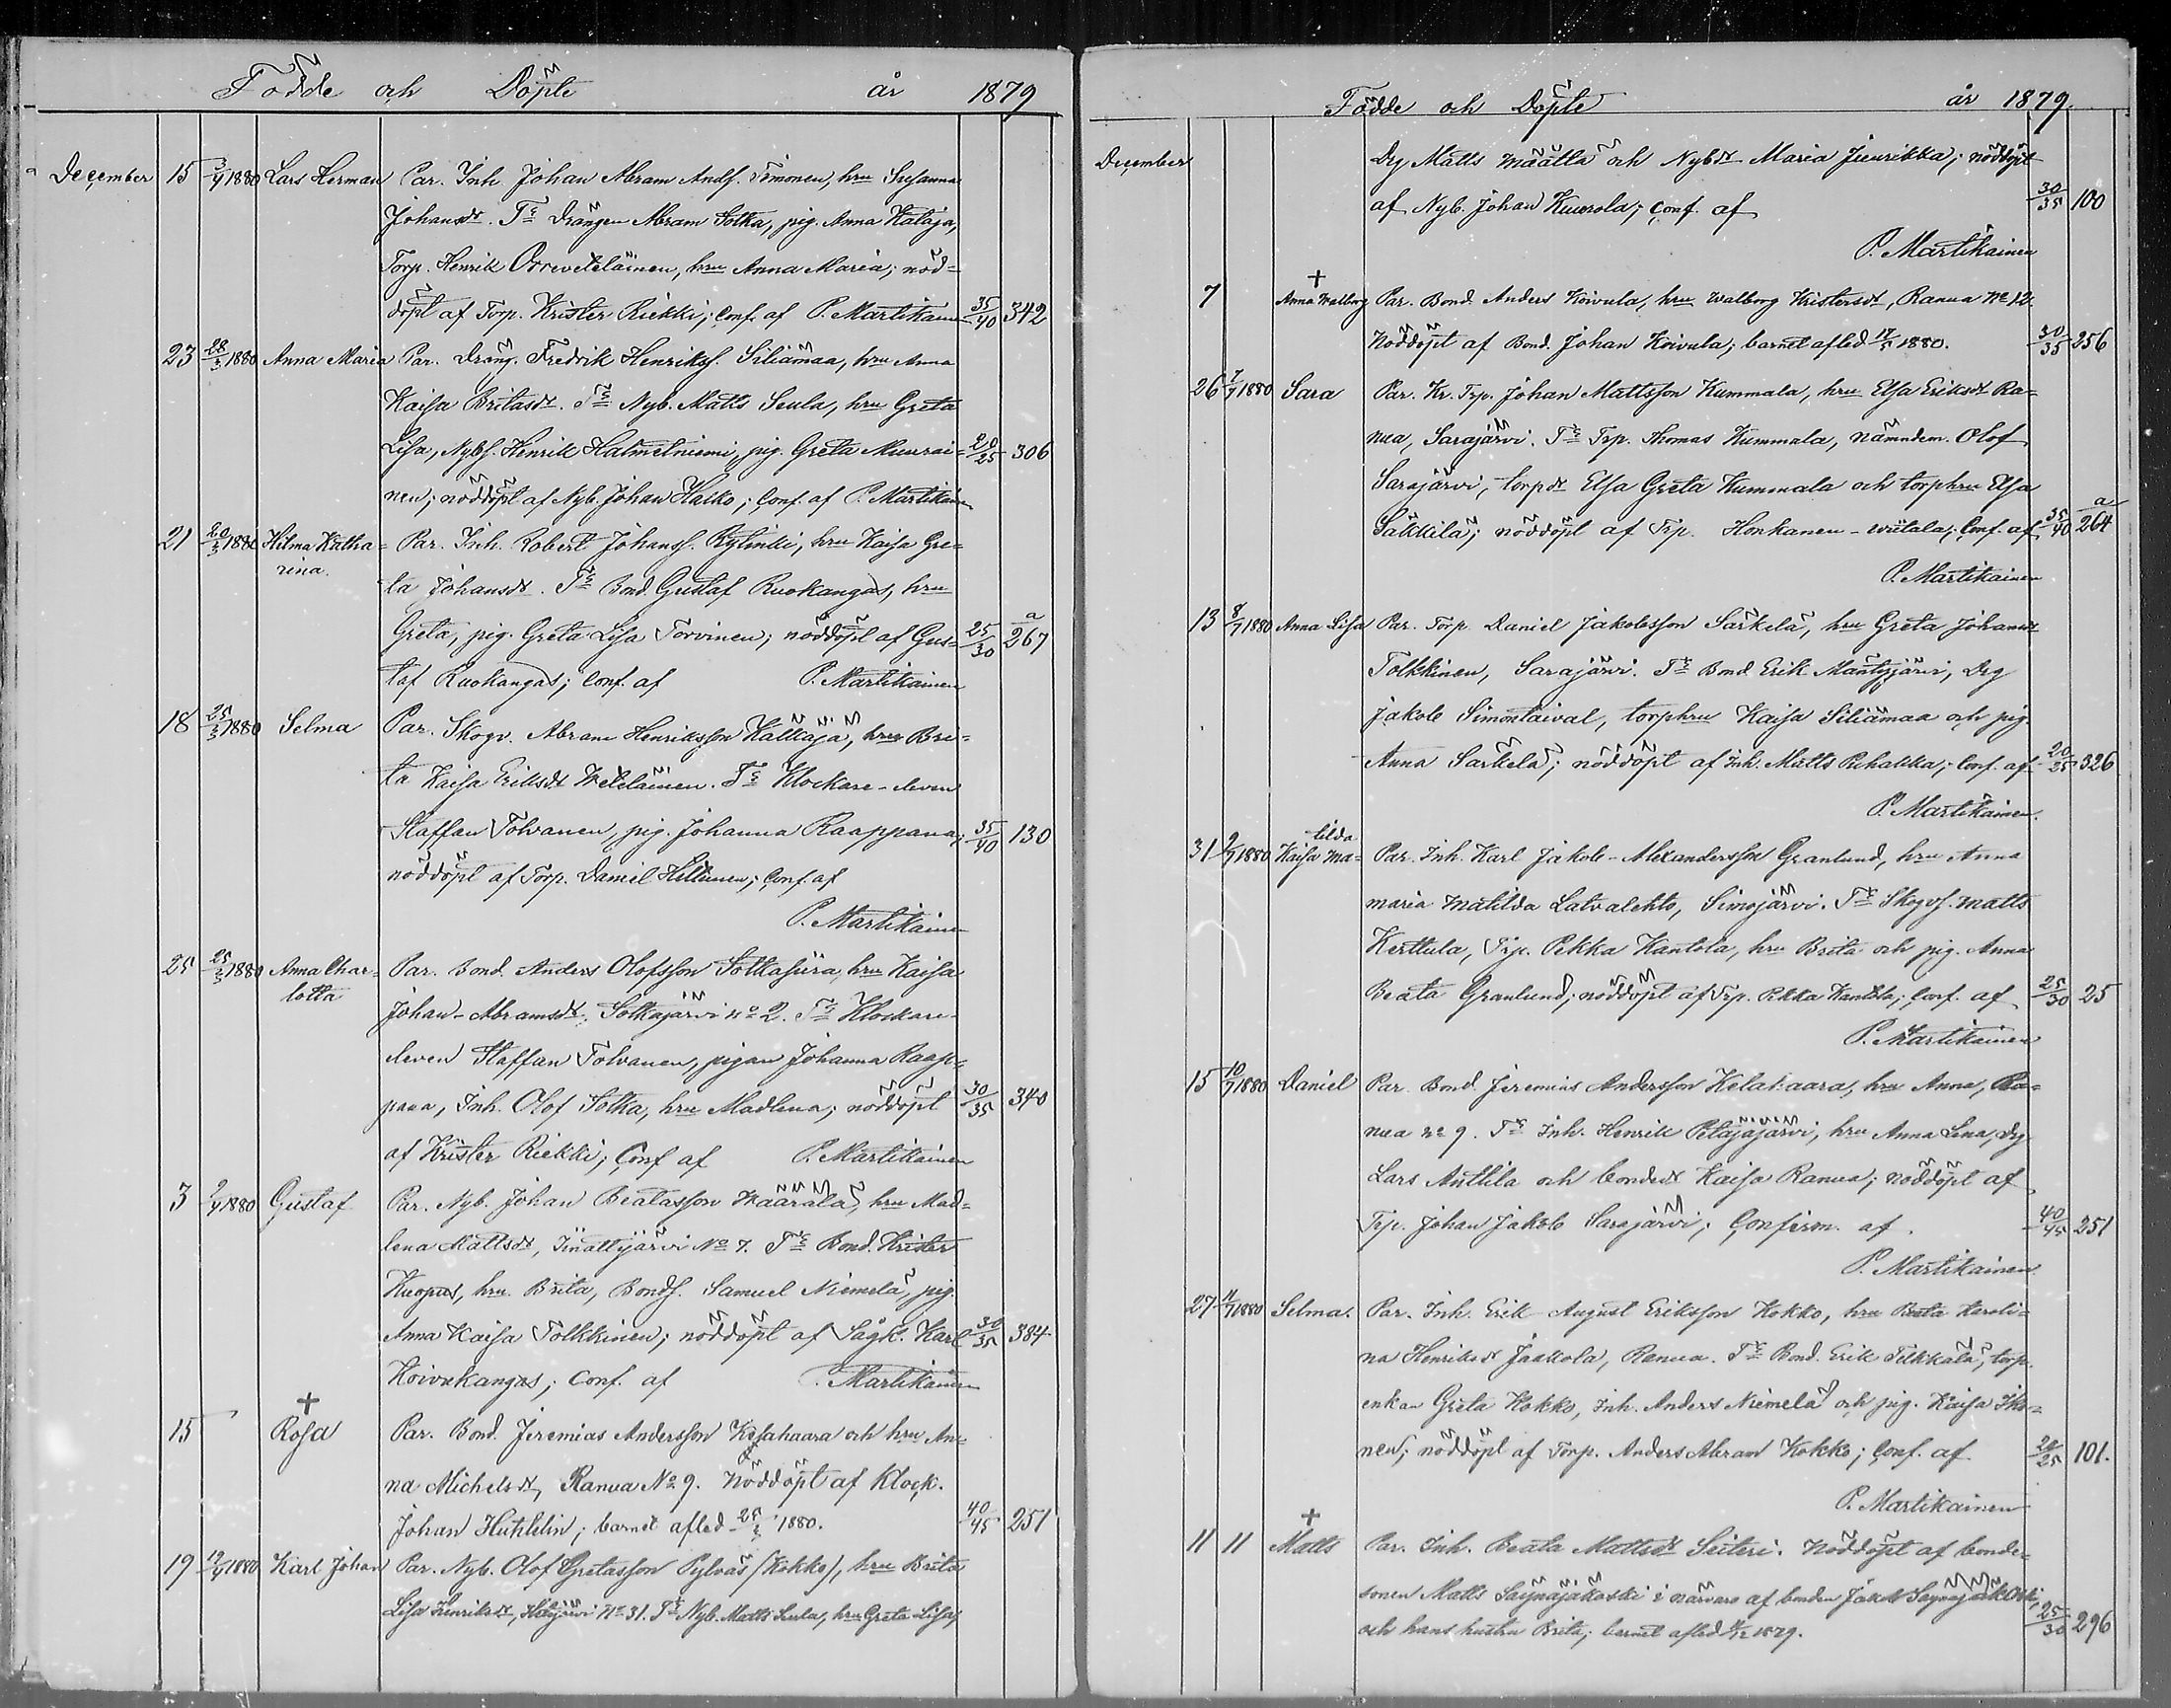 Födde och Döpte år 1879
December 15 1880 Lars Herman Par. Inh. Johan Abram Andss. Simonen, hru Susanna
Johansdr. Ts Drängen Abram Sotka, pig. Anna Kataja,
Torp. Henrik Orreveteläinen, hru Anna Maria; nöd=
döpt af Torp. Krister Riekki; Conf. af P. Martikainen 35/40 342
23 28/3 1880 Anna Maria Par. Dräng. Fredrik Henrikss. Siliämaa, hru Anna
Kaisa Britasdr. Ts Nyb. Matts Seula, hru Greta
Lisa, Nybs. Henrik Halmetniemi, pig. Greta Muurai= 20/25 306
nen; nöddöpt af Nyb. Johan Halko; Conf. af P. Martikainen
21 20/3 1880 Hilma Katha= Par. Inh. Robert Johanss. Rytinki, hru Kaisa Gre=
rina. ta Johansdr. Ts Bond. Gustaf Ruokangas, hru
Greta, pig. Greta Lisa Torvinen; nöddöpt af Gus= 25/30 a/267
taf Ruokangas; Conf. af P. Martikainen
18 25/3 1880 Selma Par. Skogv. Abram Henriksson Kälkäjä, hru Bri=
ta Kaisa Eriksdr Weteläinen. Ts Klockare-eleven
Staffan Tolvanen, pig. Johanna Raappana; 35/40 130
nöddöpt af Torp. Daniel Hiltunen; Conf. af
P. Martikainen
25 25/3 1880 Anna Char= Par. Bond. Anders Olofsson Sotkasiira, hru Kaisa
lotta Johan-Abramsdr, Sotkajärvi no 2. Ts Klockare-
eleven Staffan Tolvanen, pigan Johanna Raap=
pana, Inh. Olof Sotka, hru Madlena; nöddöpt 30/35 340
af Krister Riekki; Conf af P. Martikainen
3 2/4 1880 Gustaf Par. Nyb. Johan Beatasson Määrälä, hru Mad=
lena Mattsdr, Iinättijärvi No 7. Ts Bond. Krister
Kuopus, hru Brita, Bonds. Samuel Niemelä, pig.
Anna Kaisa Tolkkinen; nöddöpt af Sågk. Karl 30/35 384
Koivukangas; Conf. af P. Martikainen
15 + Rosa Par. Bond. Jeremias Andersson Kelahaara och hru An=
na Michelsdr, Ranua No 9. Nöddöpt af Klock.
Johan Huhlelin; barnet afled 25/2 1880. 40/45 251
19 12/4 1880 Karl Johan Par. Nyb. Olof Gretasson Pylväs (Kokko), hru Brita
Lisa Henriksdr, No 31. Ts Nyb. Matts Seula, hru Greta Lisa,
Födde och Döpte år 1879
December Drg Matts Määttä och Nybdr Maria Juurikka; nöddöpt
af Nyb. Johan Kuurola; Conf. af 30/35 100
P. Martikainen
7 + Anna Walborg Par. Bond. Anders Koivula, hru Walborg Kristersdr, Ranua No 12
Nöddöpt af Bond. Johan Koivula; barnet afled 17/5 1880. 30/35 256
26 7/7 1880 Sara Par. Kr. Trp. Johan Mattsson Kummala, hru Elsa Eriksdr Ra=
nua, Sarajärvi. Ts Trp. Thomas Kummala, nämndem. Olof
Sarajärvi, torpdr Elsa Greta Kummala och torphru Elsa
Säkkilä; nöddöpt af Trp. Honkanen-wiitala; Conf. af 35/40 a/264
P. Martikainen
13 8/7 1880 Anna Lisa Par. Torp Daniel Jakobsson Särkelä, hru Greta Johansdr
Tolkkinen, Sarajärvi. Ts Bond Erik Mäntyjärvi, Drg
Jakob Simontaival, torphru Kaisa Siliämaa och pig.
Anna Särkelä; nöddöpt af Inh. Matts Puhakka; Conf. af 20/25 326
P. Martikainen.
31 9/7 1880 Kaisa Ma=tilda Par. Inh. Karl Jakob-Alexandersson Granlund, hru Anna
Maria Matilda Latvalehto, Simojärvi. Ts Skogvs. Matts
Kerttula, Trp. Pekka Kantola, hru Brita och pig. Anna
Beata Granlund; nöddöpt af Trp. Pekka Kantola; Conf. af 25/30 25
P. Martikainen
15 10/7 1880 Daniel Par. Bond. Jeremias Andersson Kelahaara, hru Anna, Ra=
nua no 9. Ts Inh. Henrik Petäjäjärvi, hru Anna Lena, Drg
Lars Anttila och bondedr Kaisa Ranua; nöddöpt af
Trp. Johan Jakob Sarajärvi; Confirm. af 40/45 251
P. Martikainen.
27 11/7 1880 Selma. Par. Inh. Erik August Eriksson Kokko, hru Beata Karoli=
na Henriksdr Jaakola, Ranua. Ts Bond. Erik Tilkkala, torp.
enkan Greta Kokko, Inh. Anders Niemelä och pig. Kaisa Iko=
nen; nöddöpt af Torp. Anders Abram Kokko; Conf. af 20/25 101.
P. Martikainen
11 11 + Matts Par. Inh. Beata Mattsdr Seiteri. Nöddöpt af bonde=
sonen Matts Säynäjäkoski i närvaro af bonden Jakob Säynäjäkoski
och hans hustru Brita; barnet afled 11/12 1879. 25/30 296